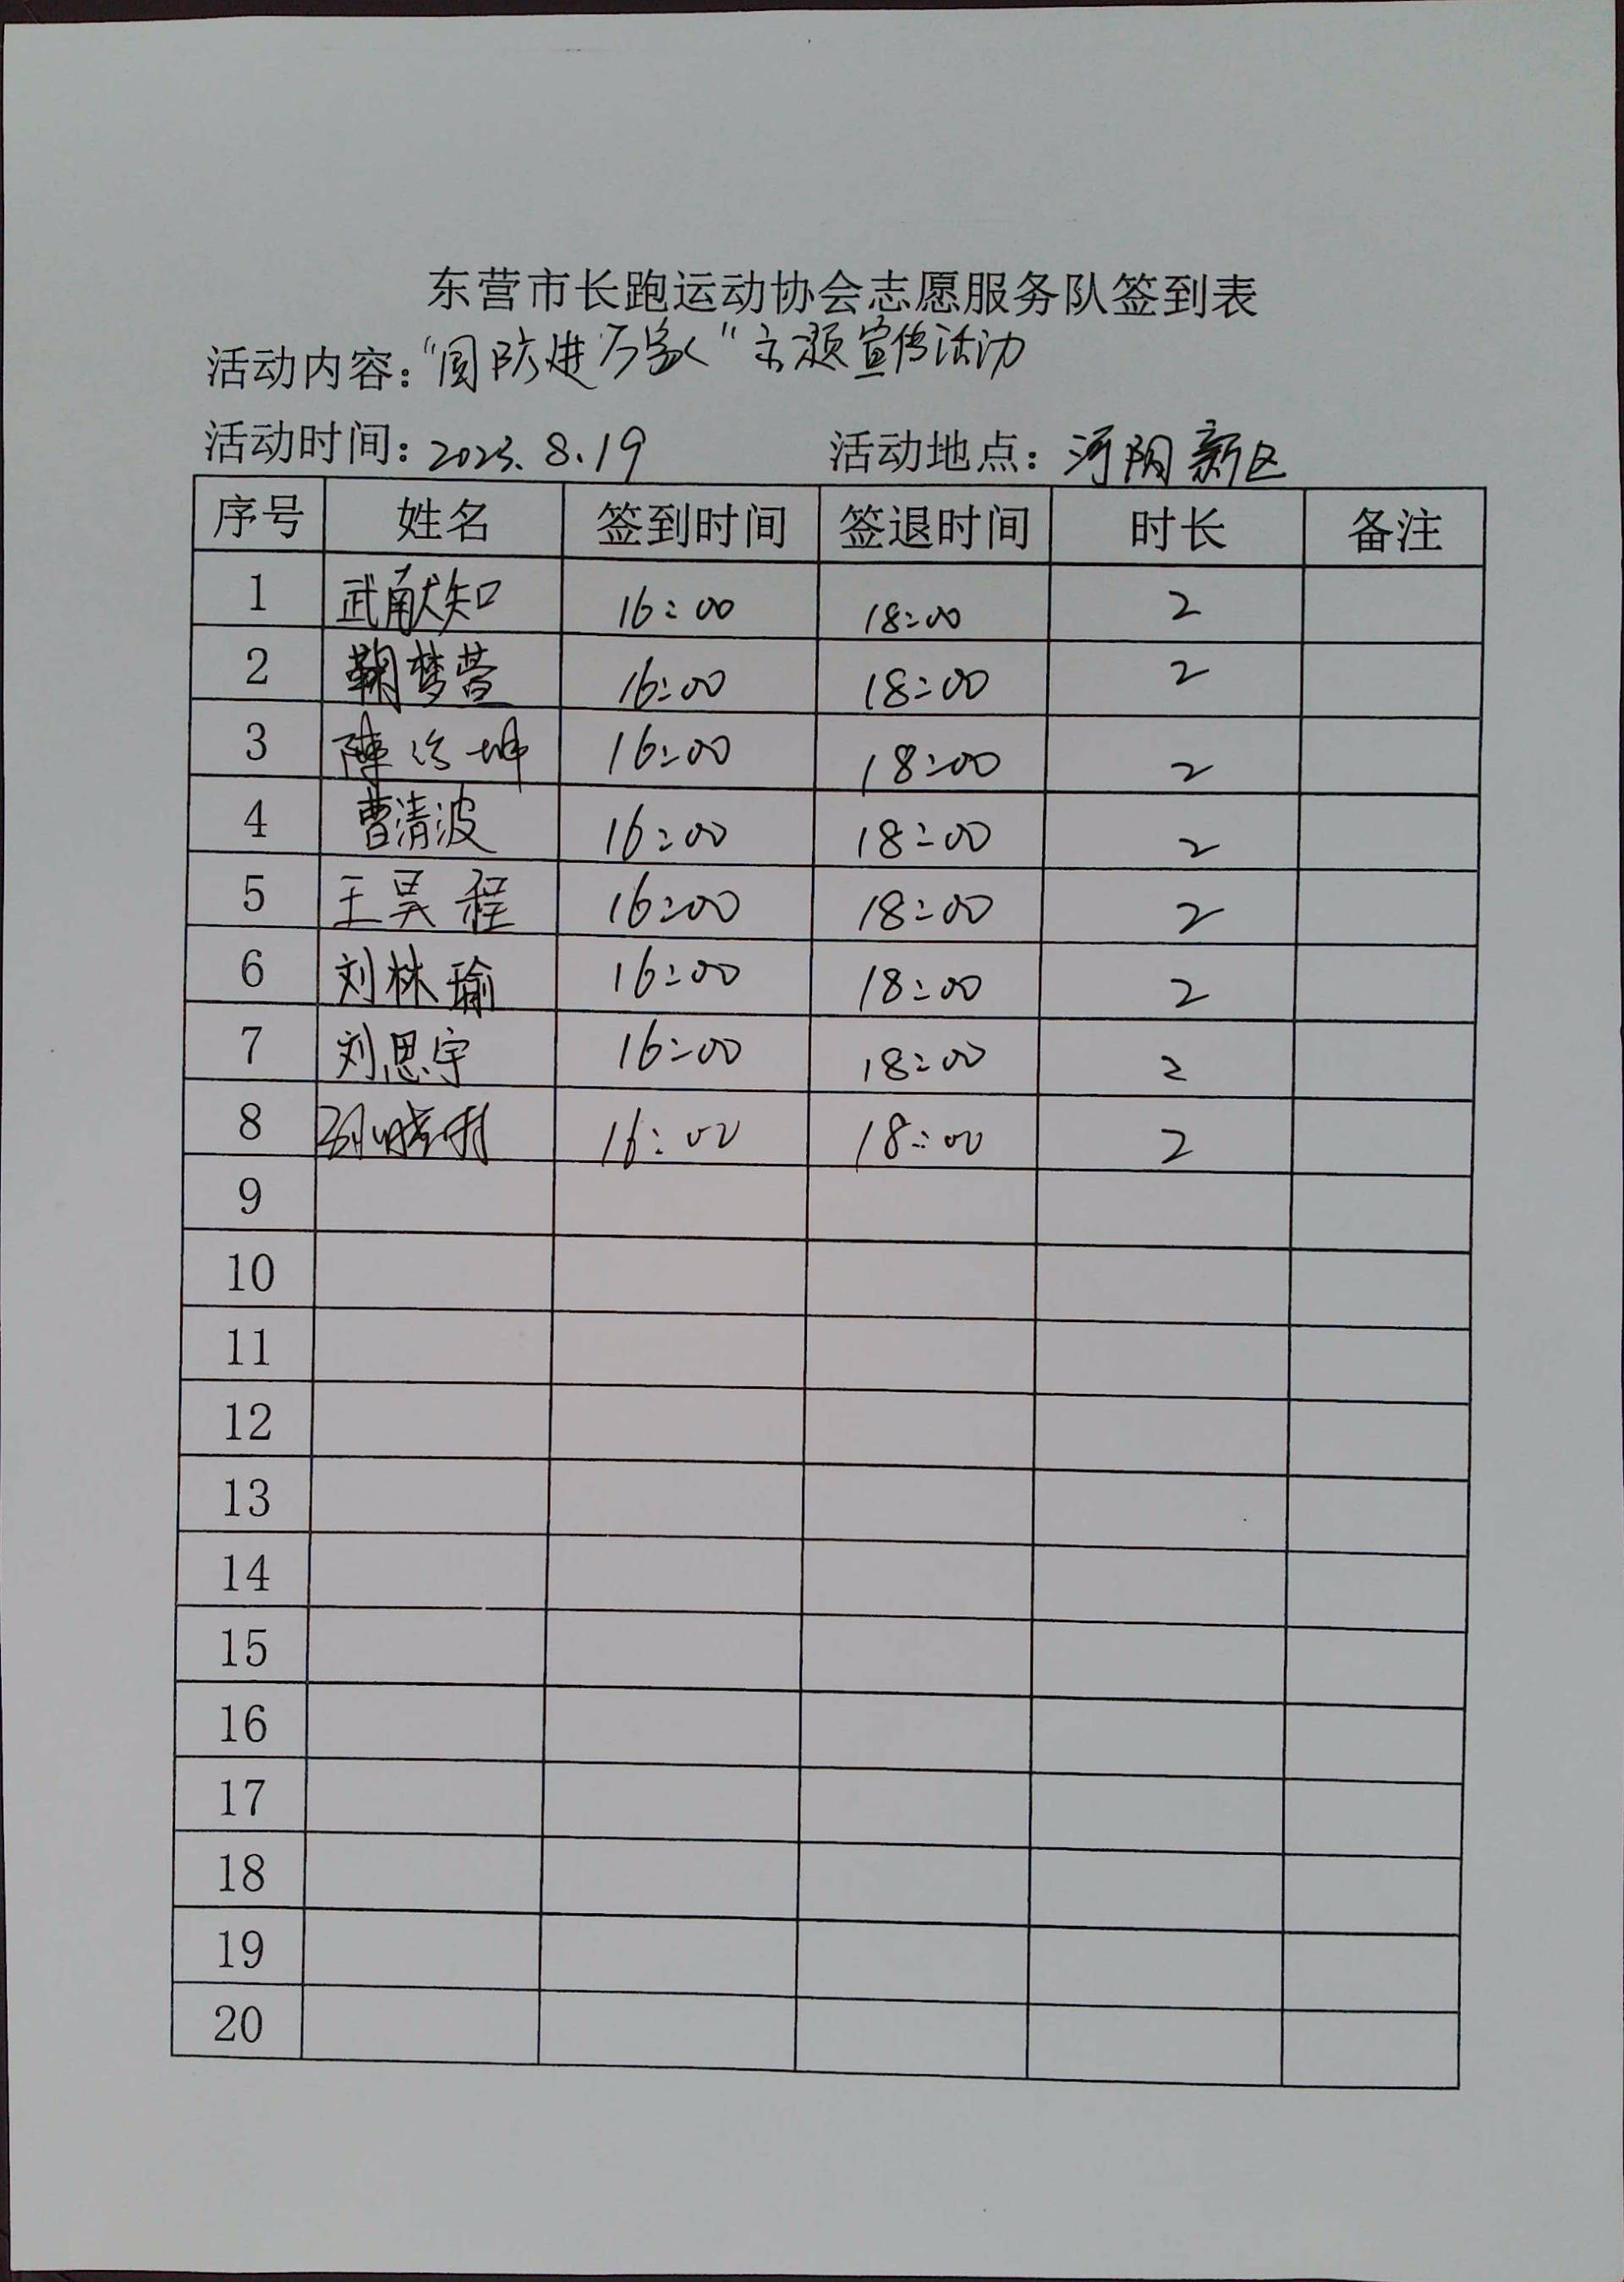 东营市长跑运动协会志愿服务队签到表
活动内容："国防进万家"主题宣传活动
活动时间：2023.8.19 活动地点：河阴新区
序号 姓名 签到时间 签退时间 时长 备注
1 武献知 16:00 18:00 2
2 鞠梦营 16:00 18:00 2
3 陈 坤 16:00 18:00 2
4 曹清波 16:00 18:00 2
5 王昊程 16:00 18:00 2
6 刘林瑜 16:00 18:00 2
7 刘思宇 16:00 18:00 2
8 16:00 18:00 2
9
10
11
12
13
14
15
16
17
18
19
20